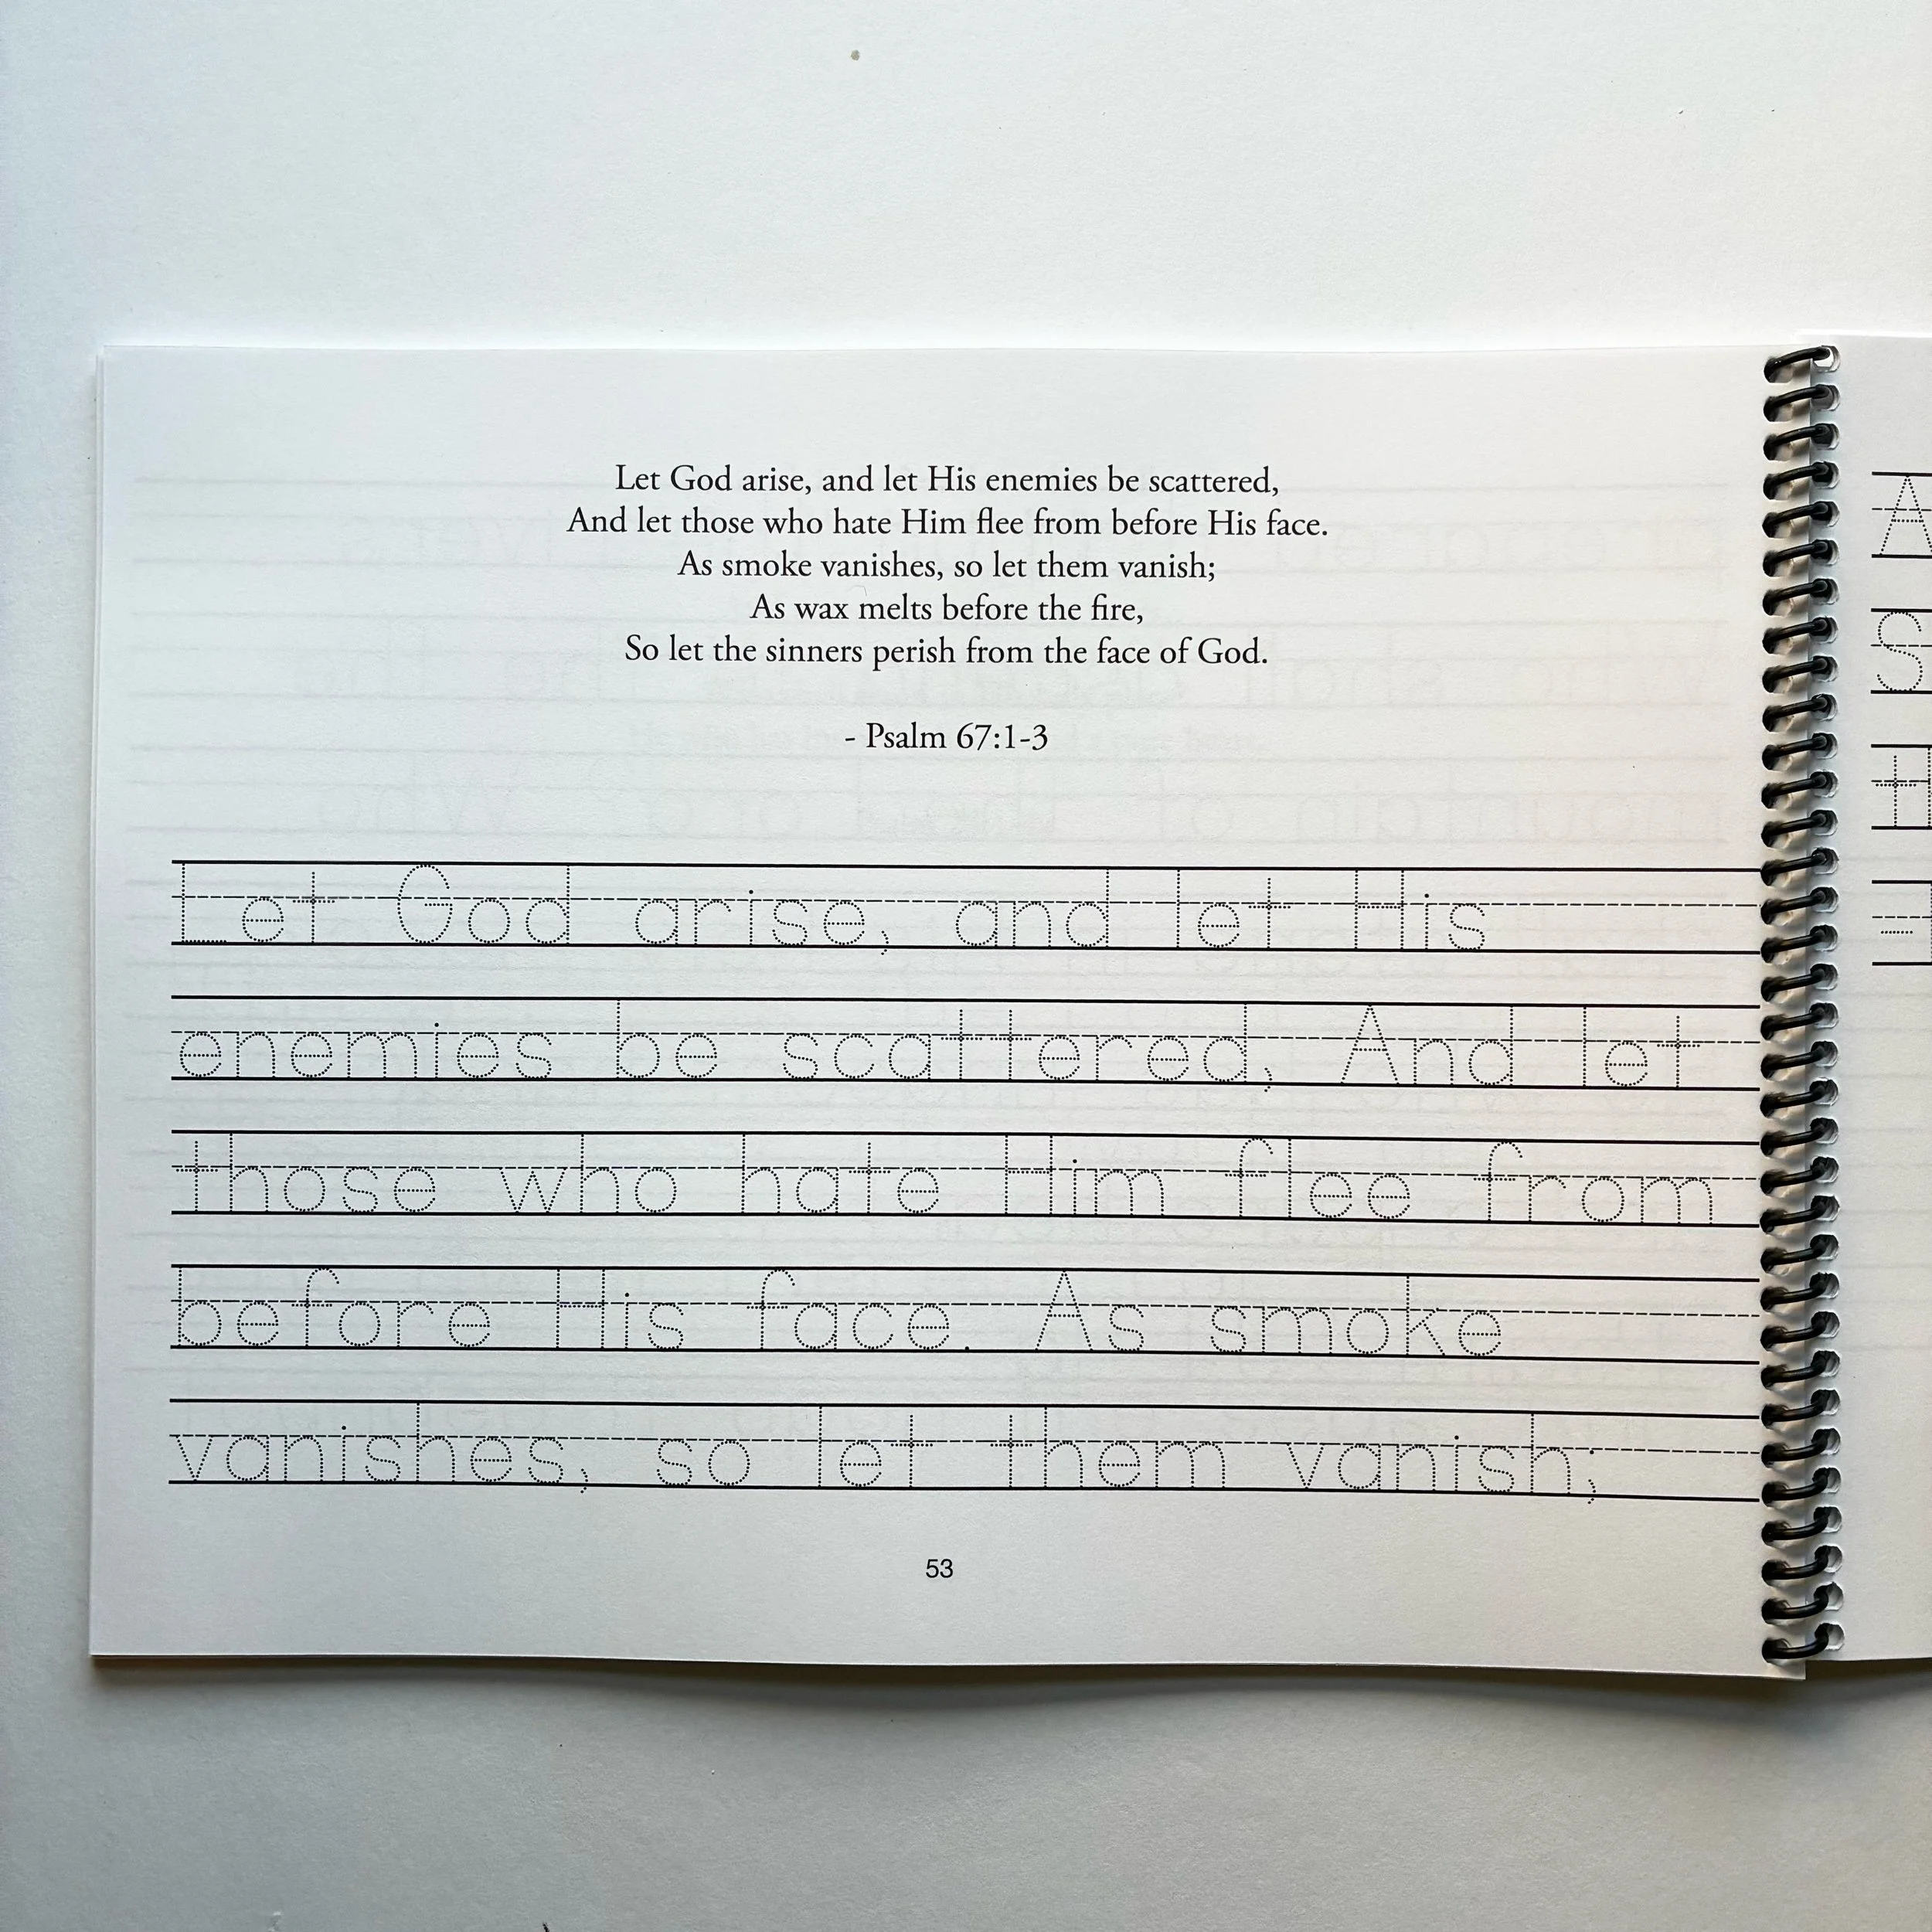 Let God arise, and let His enemies be scattered,
And let those who hate Him flee from before His face.
As smoke vanishes, so let them vanish;
As wax melts before the fire,
So let the sinners perish from the face of God.
- Psalm 67:1-3
Let God arise, and let His
enemies be scattered, And let
those who hate Him flee from
before His face. As smoke
vanishes, so let them vanish;
53
A
S